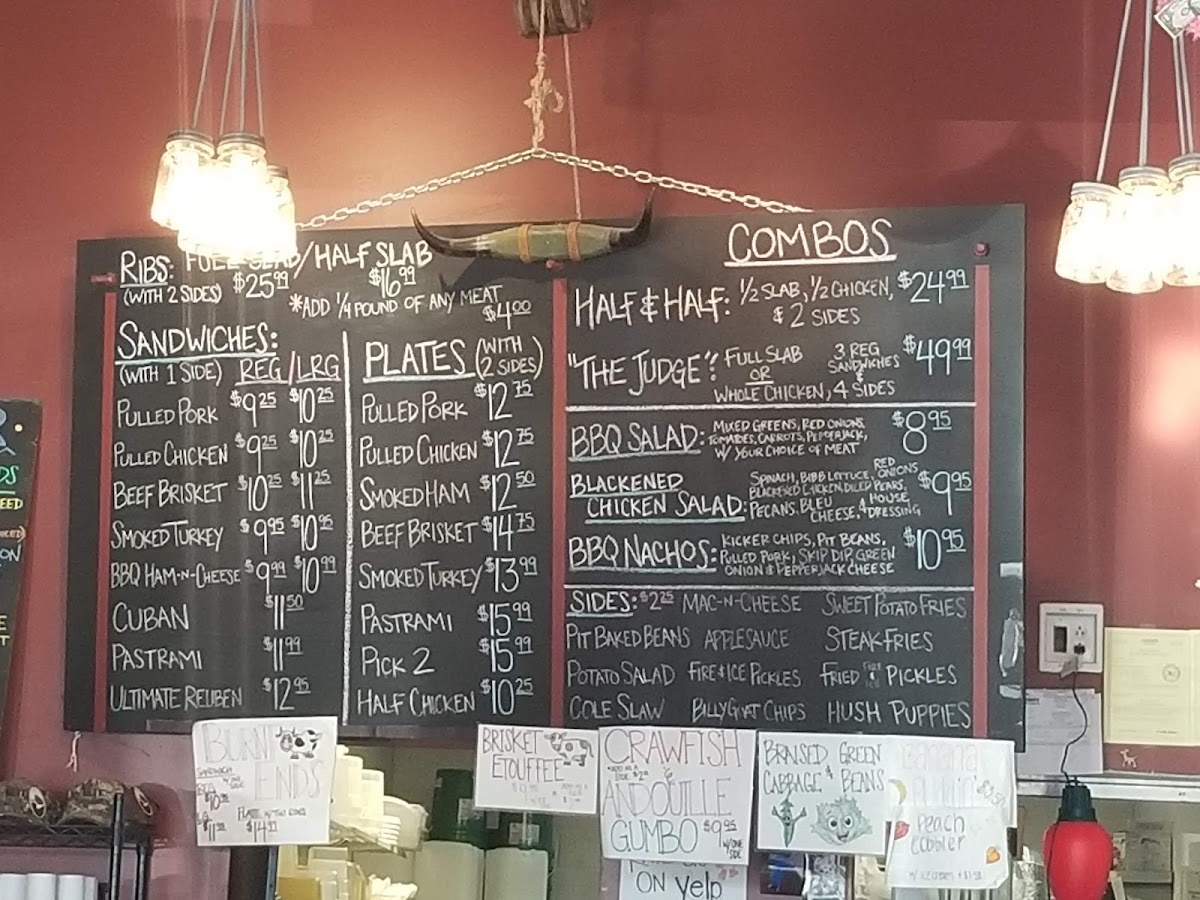 RIBS: FULL SLAB/HALF SLAB
(WITH 2 SIDES) $25.99 $16.99
*ADD 1/4 POUND OF ANY MEAT
$4.00
SANDWICHES:
(WITH 1 SIDE) REG/LRG
PULLED PORK $9.25 $10.25
PULLED CHICKEN $9.25 $10.25
BEEF BRISKET $10.25 $11.25
SMOKED TURKEY $9.95 $10.95
BBQ HAM-N-CHEESE $9.99 $10.99
CUBAN $11.50
PASTRAMI $11.99
ULTIMATE REUBEN $12.95
PLATES (WITH 2 SIDES)
PULLED PORK $12.75
PULLED CHICKEN $12.75
SMOKED HAM $12.50
BEEF BRISKET $14.75
SMOKED TURKEY $13.99
PASTRAMI $15.99
PICK 2 $15.99
HALF CHICKEN $10.25
COMBOS
HALF & HALF: 1/2 SLAB, 1/2 CHICKEN, $24.99
& 2 SIDES
"THE JUDGE": FULL SLAB 3 REG $49.99
OR SANDWICHES
WHOLE CHICKEN, & 4 SIDES
BBQ SALAD: MIXED GREENS, RED ONIONS, $8.95
TOMATOES, CARROTS, PEPPERJACK,
W/ YOUR CHOICE OF MEAT
BLACKENED CHICKEN SALAD: SPINACH, BIBB LETTUCE, RED ONIONS $9.95
BLACKENED CHICKEN, DICED PEARS,
PECANS, BLEU CHEESE, & HOUSE DRESSING
BBQ NACHOS: KICKER CHIPS, PIT BEANS, $10.95
PULLED PORK, SKIP DIP, GREEN
ONION & PEPPERJACK CHEESE
SIDES: $2.25 MAC-N-CHEESE SWEET POTATO FRIES
PIT BAKED BEANS APPLESAUCE STEAK FRIES
POTATO SALAD FIRE & ICE PICKLES FRIED FIRE & ICE PICKLES
COLE SLAW BILLYGOAT CHIPS HUSH PUPPIES
BURNT
ENDS
SANDWICH
$10.95
$11.95
PLATE W/ TWO SIDES
$14.99
BRISKET
ETOUFFEE
CRAWFISH
*ADD AS A SIDE $2.00
&
ANDOUILLE
GUMBO $9.95
W/ONE SIDE
BRAISED GREEN
CABBAGE & BEANS
Banana
Peach
Cobbler
ON Yelp